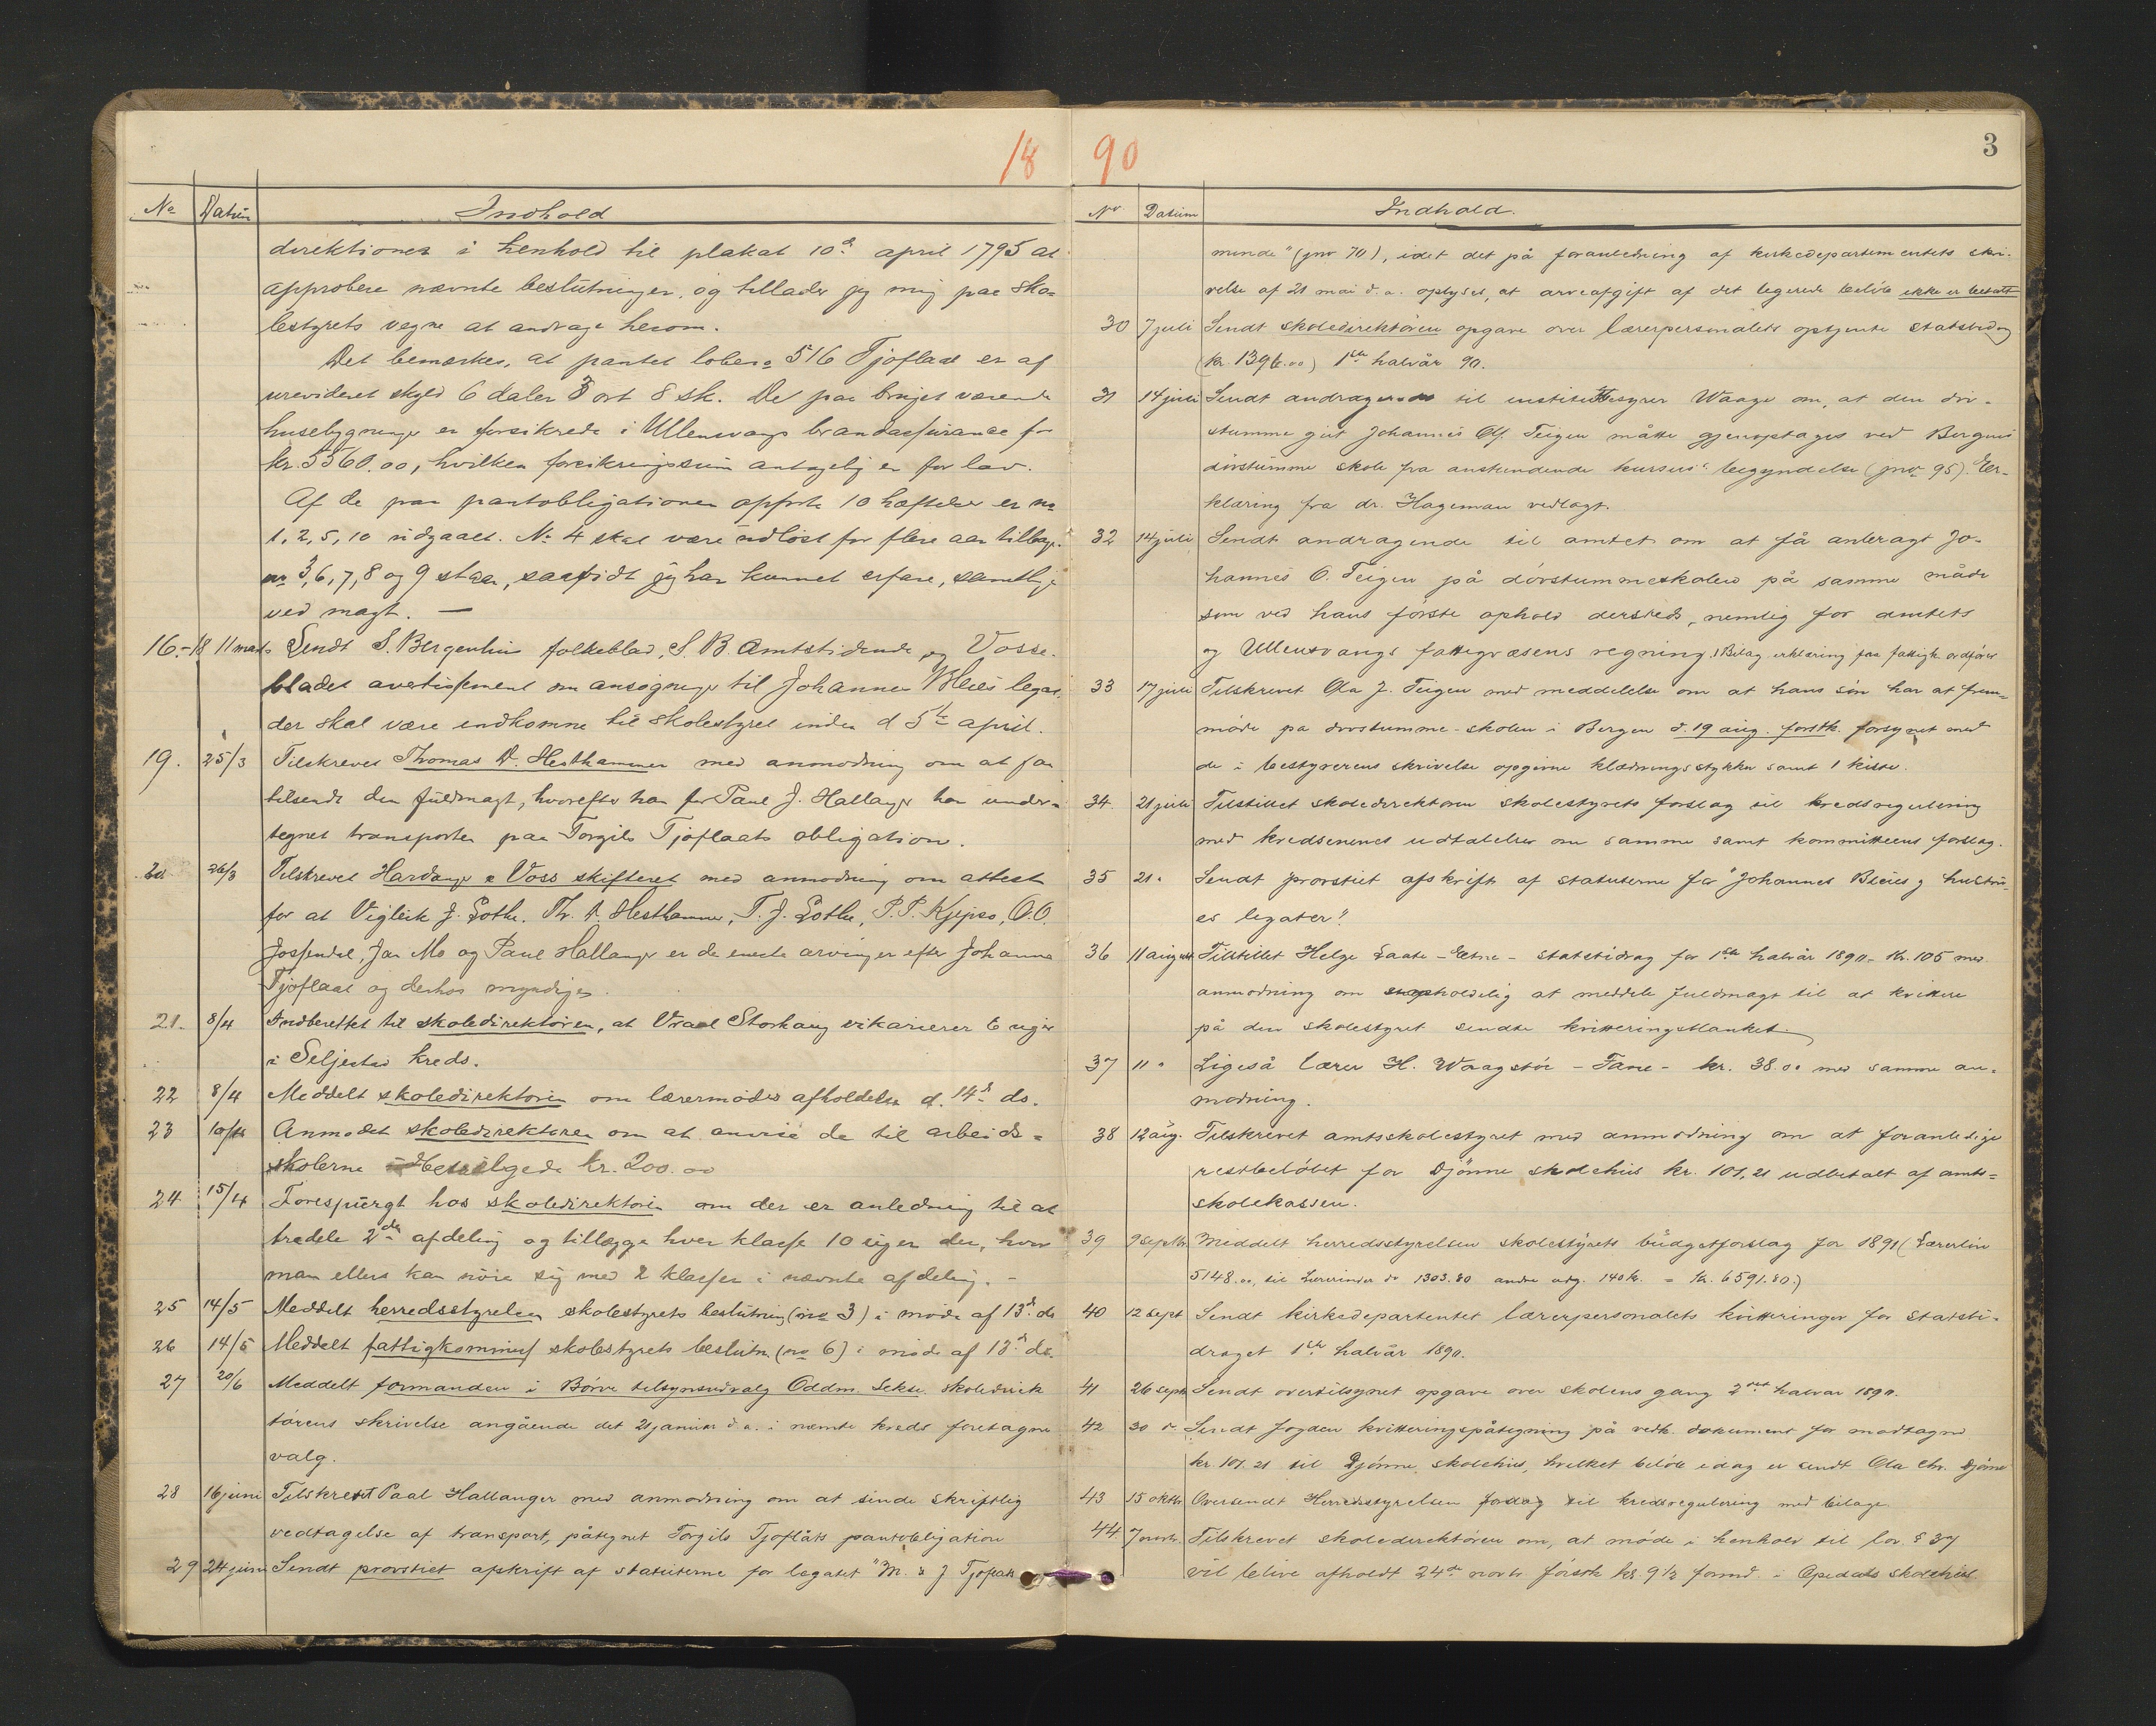 18 90
3
No Datum Indhold
direktionen i henhold til plakat 10de april 1795 at
approbere nævnte beslutninger, og tillader jeg mig paa sko-
lestyrets vegne at andrage herom.
Det bemærkes, at pantet løbeno 516 Tjoflaat er af
urevideret skyld 6 daler 3 ort 8 sk. De paa bruget værende
husebygninger er forsikrede i Ullensvangs brandassurance for
kr. 5560.00, hvilken forsikringssum antagelig er for lav.
Af de paa pantobligationen opførte 10 hæftelser er no
1, 2, 5, 10 udgaaet. No 4 skal være indløst for flere aar tilbage.
no 3, 6, 7, 8 og 9 staar, saavidt jeg har kunnet erfare, samtlige
ved magt. —
16-18 11 marts Sendt S. Bergenhus folkeblad, S. B. Amtstidende og Vosse-
bladet avertissement om ansøgninger til Johannes Bleies legat,
der skal være indkomne til skolestyret inden d 5te april.
19. 25/3 Tilskrevet Thomas A. Hesthammer med anmodning om at faa
tilsendt den fuldmagt, hvorefter han for Paul J. Hallanger har under-
tegnet transporten paa Torgils Tjoflaats obligation.
20. 26/3 Tilskrevet Hardanger & Voss skifteret med anmodning om attest
for at Vigleik J. Lothe, Th. A. Hesthammer, T. J. Lothe, P. P. Kjepso, O. O.
Jossendal, Jan Mo og Paul Hallanger er de eneste arvinger efter Johanna
Tjoflaat og derhos myndige.
21. 8/4 Indberettet til skoledirektøren, at Vraal Storhaug vikarierer 6 uger
i Seljestad kreds.
22 8/4 Meddelt skoledirektøren om lærermødes afholdelse d. 14de ds.
23 10/4 Anmodet skoledirektøren om at anvise de til arbeids-
skolerne bevilgede kr. 200.00
24 15/4 Forespurgt hos skoledirektøren om der er anledning til at
tredele 2den afdeling og tillægge hver klasse 10 uger der, hvor
man ellers kan nøie sig med 2 klasser i nævnte afdeling. -
25 14/5 Meddelt herredsstyrelsen skolestyrets beslutning (no 3) i møde af 13de ds
26 14/5 Meddelt fattigkommiss skolestyrets beslutn. (no 6) i møde af 13de ds.
27 20/6 Meddelt formanden i Børve tilsynsudvalg Oddm. Sekse skoledirek
törens skrivelse angående det 21 januar d. a. i nævnte kreds foretagne
valg.
28 16 juni Tilskrevet Paal Hallanger med anmodning om at sende skriftlig
vedtagelse af transport, påtegnet Torgils Tjoflåts pantobligation
29 24 juni Sendt provstiet afskrift af statuterne for legatet "M. & J Tjoflats
No Datum Indhold.
minde" (jno 70), idet det på foranledning af kirkedepartementets skri-
velse af 21 mai d. a. oplyses, at arveafgift af det legerede beløb ikke er betalt
30 7 juli Sendt skoledirektören opgave over lærerpersonalets optjente statsbidrag
(kr. 1396.00) 1ste halvår 90.
31 14 juli Sendt andragende til institutbestyrer Waage om, at den döv-
stumme gut Johannes Olf. Teigen måtte gjenoptages ved Bergens
dövstumme skole fra anstundende kursus' begyndelse (jno 95). Er-
klæring fra dr. Hageman vedlagt.
32 14 juli Sendt andragende til amtet om at få anbragt Jo-
hannes O. Teigen på dövstummeskolen på samme måde
som ved hans förste ophold dersteds, nemlig for amtets
og Ullensvangs fattigvæsens regning. (Bilag erklæring fra fattigk. ordförer
33 17 juli Tilskrevet Ola J. Teigen med meddelelse om at hans sön har at frem-
möde på dovstumme-skolen i Bergen d. 19 aug. forstk. forsynet med
de i bestyrerens skrivelse opgivne klædningsstykker samt 1 kiste.
34. 21 juli Tilstillet skoledirektören skolestyrets forslag til kredsregulering
med kredsenenes udtalelser om samme samt kommitteens forslag.
35 21 " Sendt provstiet afskrift af statuterne for "Johannes Bleies og hustru-
es legater".
36 11 august Tilstillet Helge Laate - Etne - statstidrag for 1ste halvår 1890 - kr. 105 med
anmodning om uopholdelig at meddele fuldmagt til at kvittere
på den skolestyret sendte kvitteringsblanket.
37 11 " Ligeså lærer H. Waagstöl - Fane - kr. 38.00 med samme an-
modning.
38 12 aug. Tilskrevet amtsskolestyret med anmodning om at foranledige
restbelöbet for Djönne skolehus kr. 101,21 udbetalt af amts-
skolekassen.
39 9 septbr. Meddelt herredsstyrelsen skolestyrets budgetforslag for 1891 (Lærerlön
5148.00, til Lærerinder do 1303.80 andre udg. 140 k. = kr. 6591.80.)
40 12 sept Sendt kirkedepartentet lærerpersonalets kvitteringer for statsti-
draget 1ste halvår 1890.
41 26 septb Sendt overtilsynet opgave over skolens gang 2det halvår 1890.
42 30 s. Sendt fogden kvitteringspåtegning på vedk. dokument for modtagne
kr. 101.21 til Djönne skolehus, hvilket belöb idag er sendt Ola Chr. Djönne
43 15 oktbr. Oversendt Herredsstyrelsen forslag til kredsregulering med bilage.
44. 7 novbr. Tilskrevet skoledirektören om, at möde i henhold til lov. § 37
vil blive afholdt 24de novbr. förstk kl. 9 1/2 formd. i Opedals skolehus.